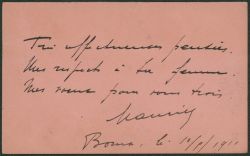 Très affectueuses pensées.
Mes respects à ta femme.
Mes vœux pour vous trois
Roma, le 1911